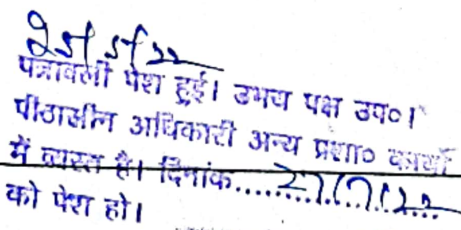 25/5/22
पत्रावली पेश हुई। उभय पक्ष उप०।
पीठासीन अधिकारी अन्य प्रशा० कार्यों
में व्यस्त है। दिनांक.....27/7/22
को पेश हो।